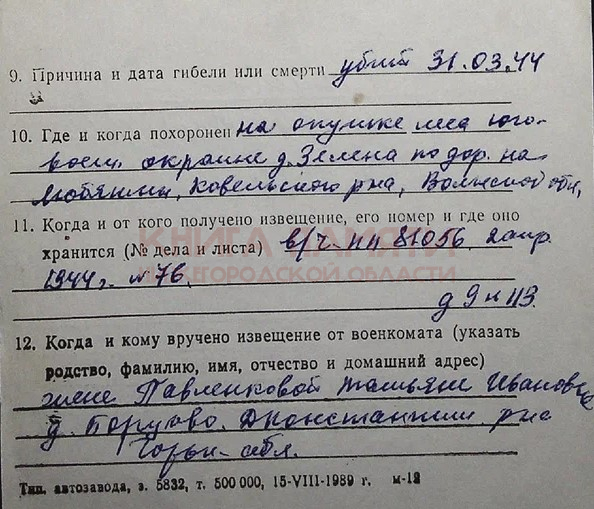 9. Причина и дата гибели или смерти убит 31.03.44
10. Где и когда похоронен на опушке леса юго-
вост. окраине д. Зелена по дор. на
Любятин, Ковельского р-на, Волынской обл,
11. Когда и от кого получено извещение, его номер и где оно
хранится (№ дела и листа) в/ч пп 81056, 2 апр.
1944 г. № 76.
д 9 л 113
12. Когда и кому вручено извещение от военкомата (указать
родство, фамилию, имя, отчество и домашний адрес)
жене Павленковой Татьяне Ивановне
д. Борцово Дконстантин. р-на
Горьк. обл.
Тип. автозавода, з. 5832, т. 500 000, 15-VIII-1989 г. м-12
КНИГА ПАМЯТИ
НИЖЕГОРОДСКОЙ ОБЛАСТИ